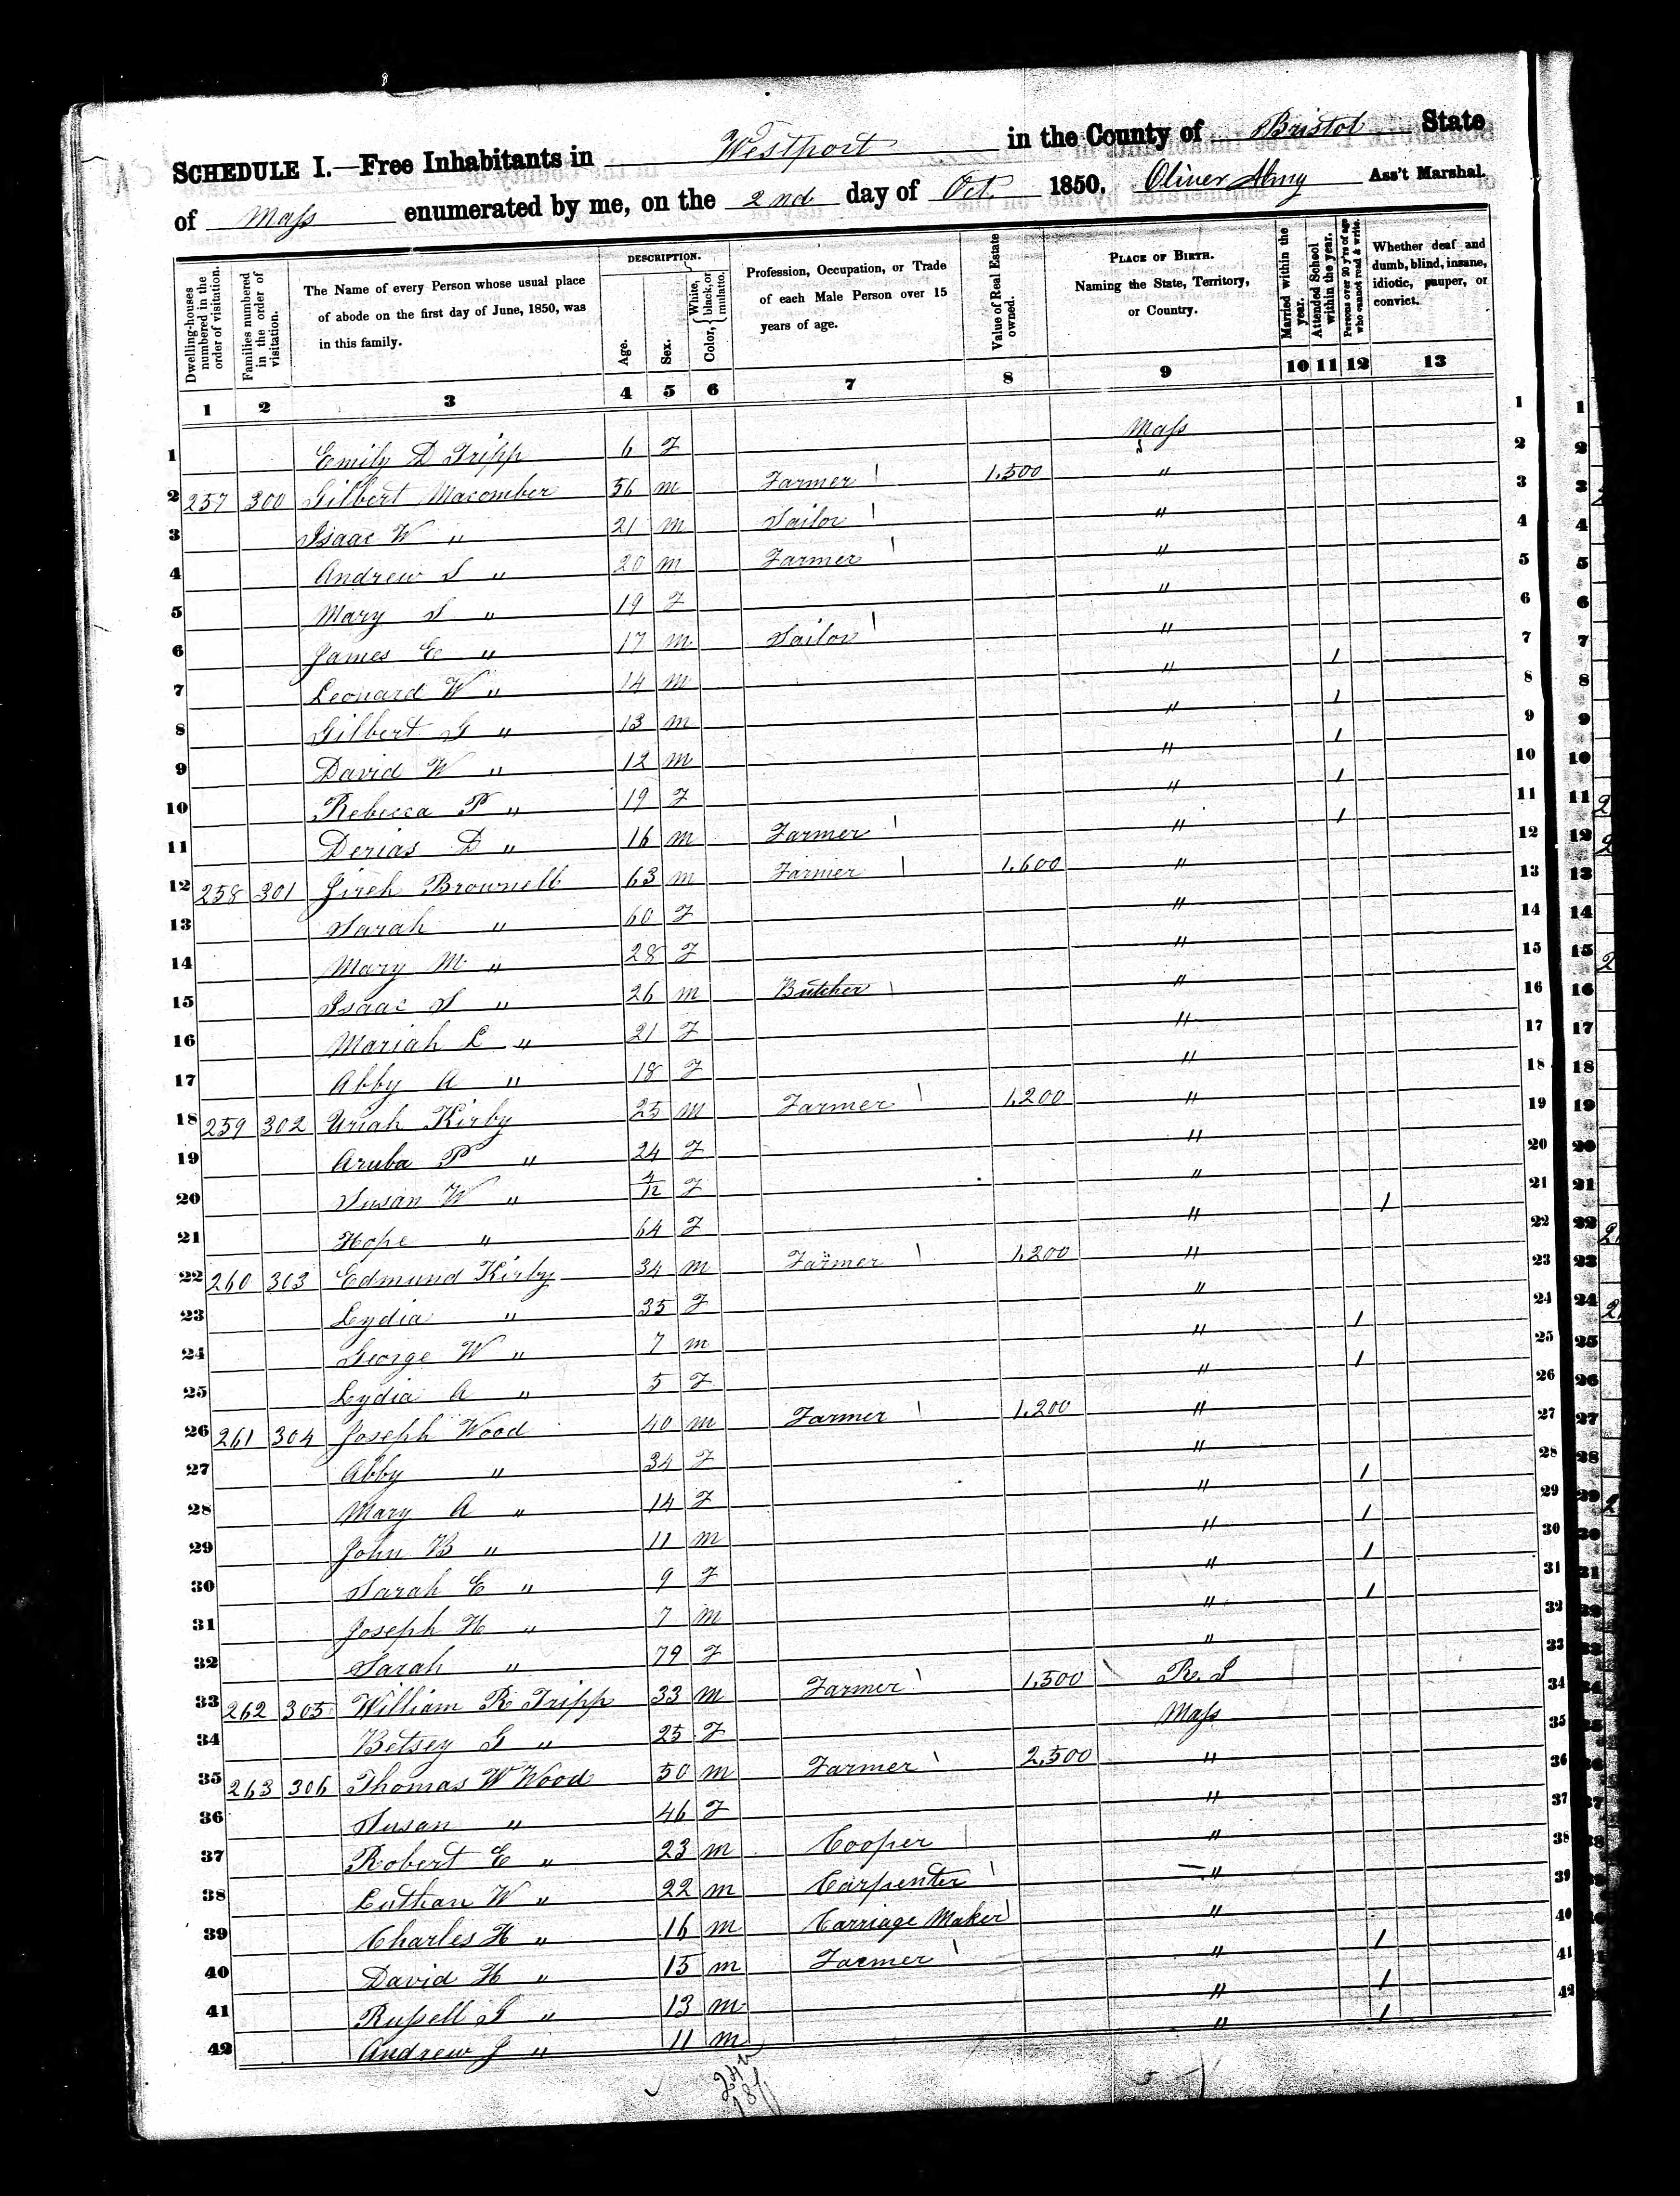 SCHEDULE I.—Free Inhabitants in Westport in the County of Bristol State
of Mass enumerated by me, on the 2nd day of Oct. 1850. Oliver Almy Ass't Marshal.
Dwelling-houses numbered in the order of visitation.
Families numbered in the order of visitation.
The Name of every Person whose usual place of abode on the first day of June, 1850, was in this family.
DESCRIPTION.
Age.
Sex.
Color, { White, black, or mulatto.
Profession, Occupation, or Trade of each Male Person over 15 years of age.
Value of Real Estate owned.
PLACE OF BIRTH. Naming the State, Territory, or Country.
Married within the year.
Attended School within the year.
Persons over 20 y'rs of age who cannot read & write.
Whether deaf and dumb, blind, insane, idiotic, pauper, or convict.
1 2 3 4 5 6 7 8 9 10 11 12 13
1 Emily D Tripp 6 F Mass 1
2 257 300 Gilbert Macomber 56 m Farmer 1,500 " 2
3 Isaac W " 21 m Sailor " 3
4 Andrew S " 20 m Farmer " 4
5 Mary S " 19 F " 5
6 James E " 17 m Sailor " 6
7 Leonard W " 14 m " 1 7
8 Gilbert G " 13 m " 1 8
9 David W " 12 m " 1 9
10 Rebecca P " 19 F " 1 10
11 Derias D " 16 m Farmer " 1 11
12 258 301 Jireh Brownell 63 m Farmer 1,600 " 12
13 Sarah " 60 F " 13
14 Mary M " 28 F " 14
15 Isaac S " 26 m Butcher " 15
16 Mariah L " 21 F " 16
17 Abby A " 18 F " 17
18 259 302 Uriah Kirby 25 m Farmer 1,200 " 18
19 Aruba P " 24 F " 19
20 Susan W " 4/12 F " 20
21 Hope " 64 F " 1 21
22 260 303 Edmund Kirby 34 m Farmer 1,200 " 22
23 Lydia " 35 F " 23
24 George W " 7 m " 1 24
25 Lydia A " 5 F " 1 25
26 261 304 Joseph Wood 40 m Farmer 1,200 " 26
27 Abby " 34 F " 27
28 Mary A " 14 F " 1 28
29 John B " 11 m " 1 29
30 Sarah E " 9 F " 1 30
31 Joseph H " 7 m " 1 31
32 Sarah " 79 F " 32
33 262 305 William R Tripp 33 m Farmer 1,500 R. I 33
34 Betsey G " 25 F Mass 34
35 263 306 Thomas W Wood 50 m Farmer 2,500 " 35
36 Susan " 46 F " 36
37 Robert E " 23 m Cooper " 37
38 Luthan W " 22 m Carpenter " 38
39 Charles H " 16 m Carriage Maker " 39
40 David H " 15 m Farmer " 1 40
41 Russell G " 13 m " 1 41
42 Andrew J " 11 m " 1 42